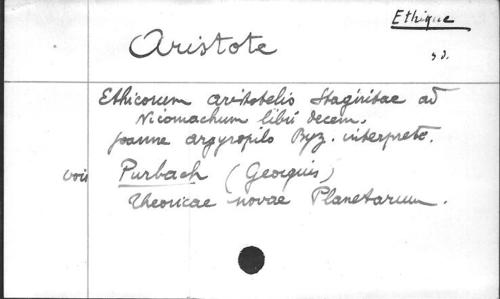 Ethique
Aristote
s d.
Ethicorum Aristotelis Stagiritae ad
Nicomachum libri decem.
Joanne Argyropilo Byz. interprete.
voir Purbach (Georgius)
Theoricae novae Planetarum.